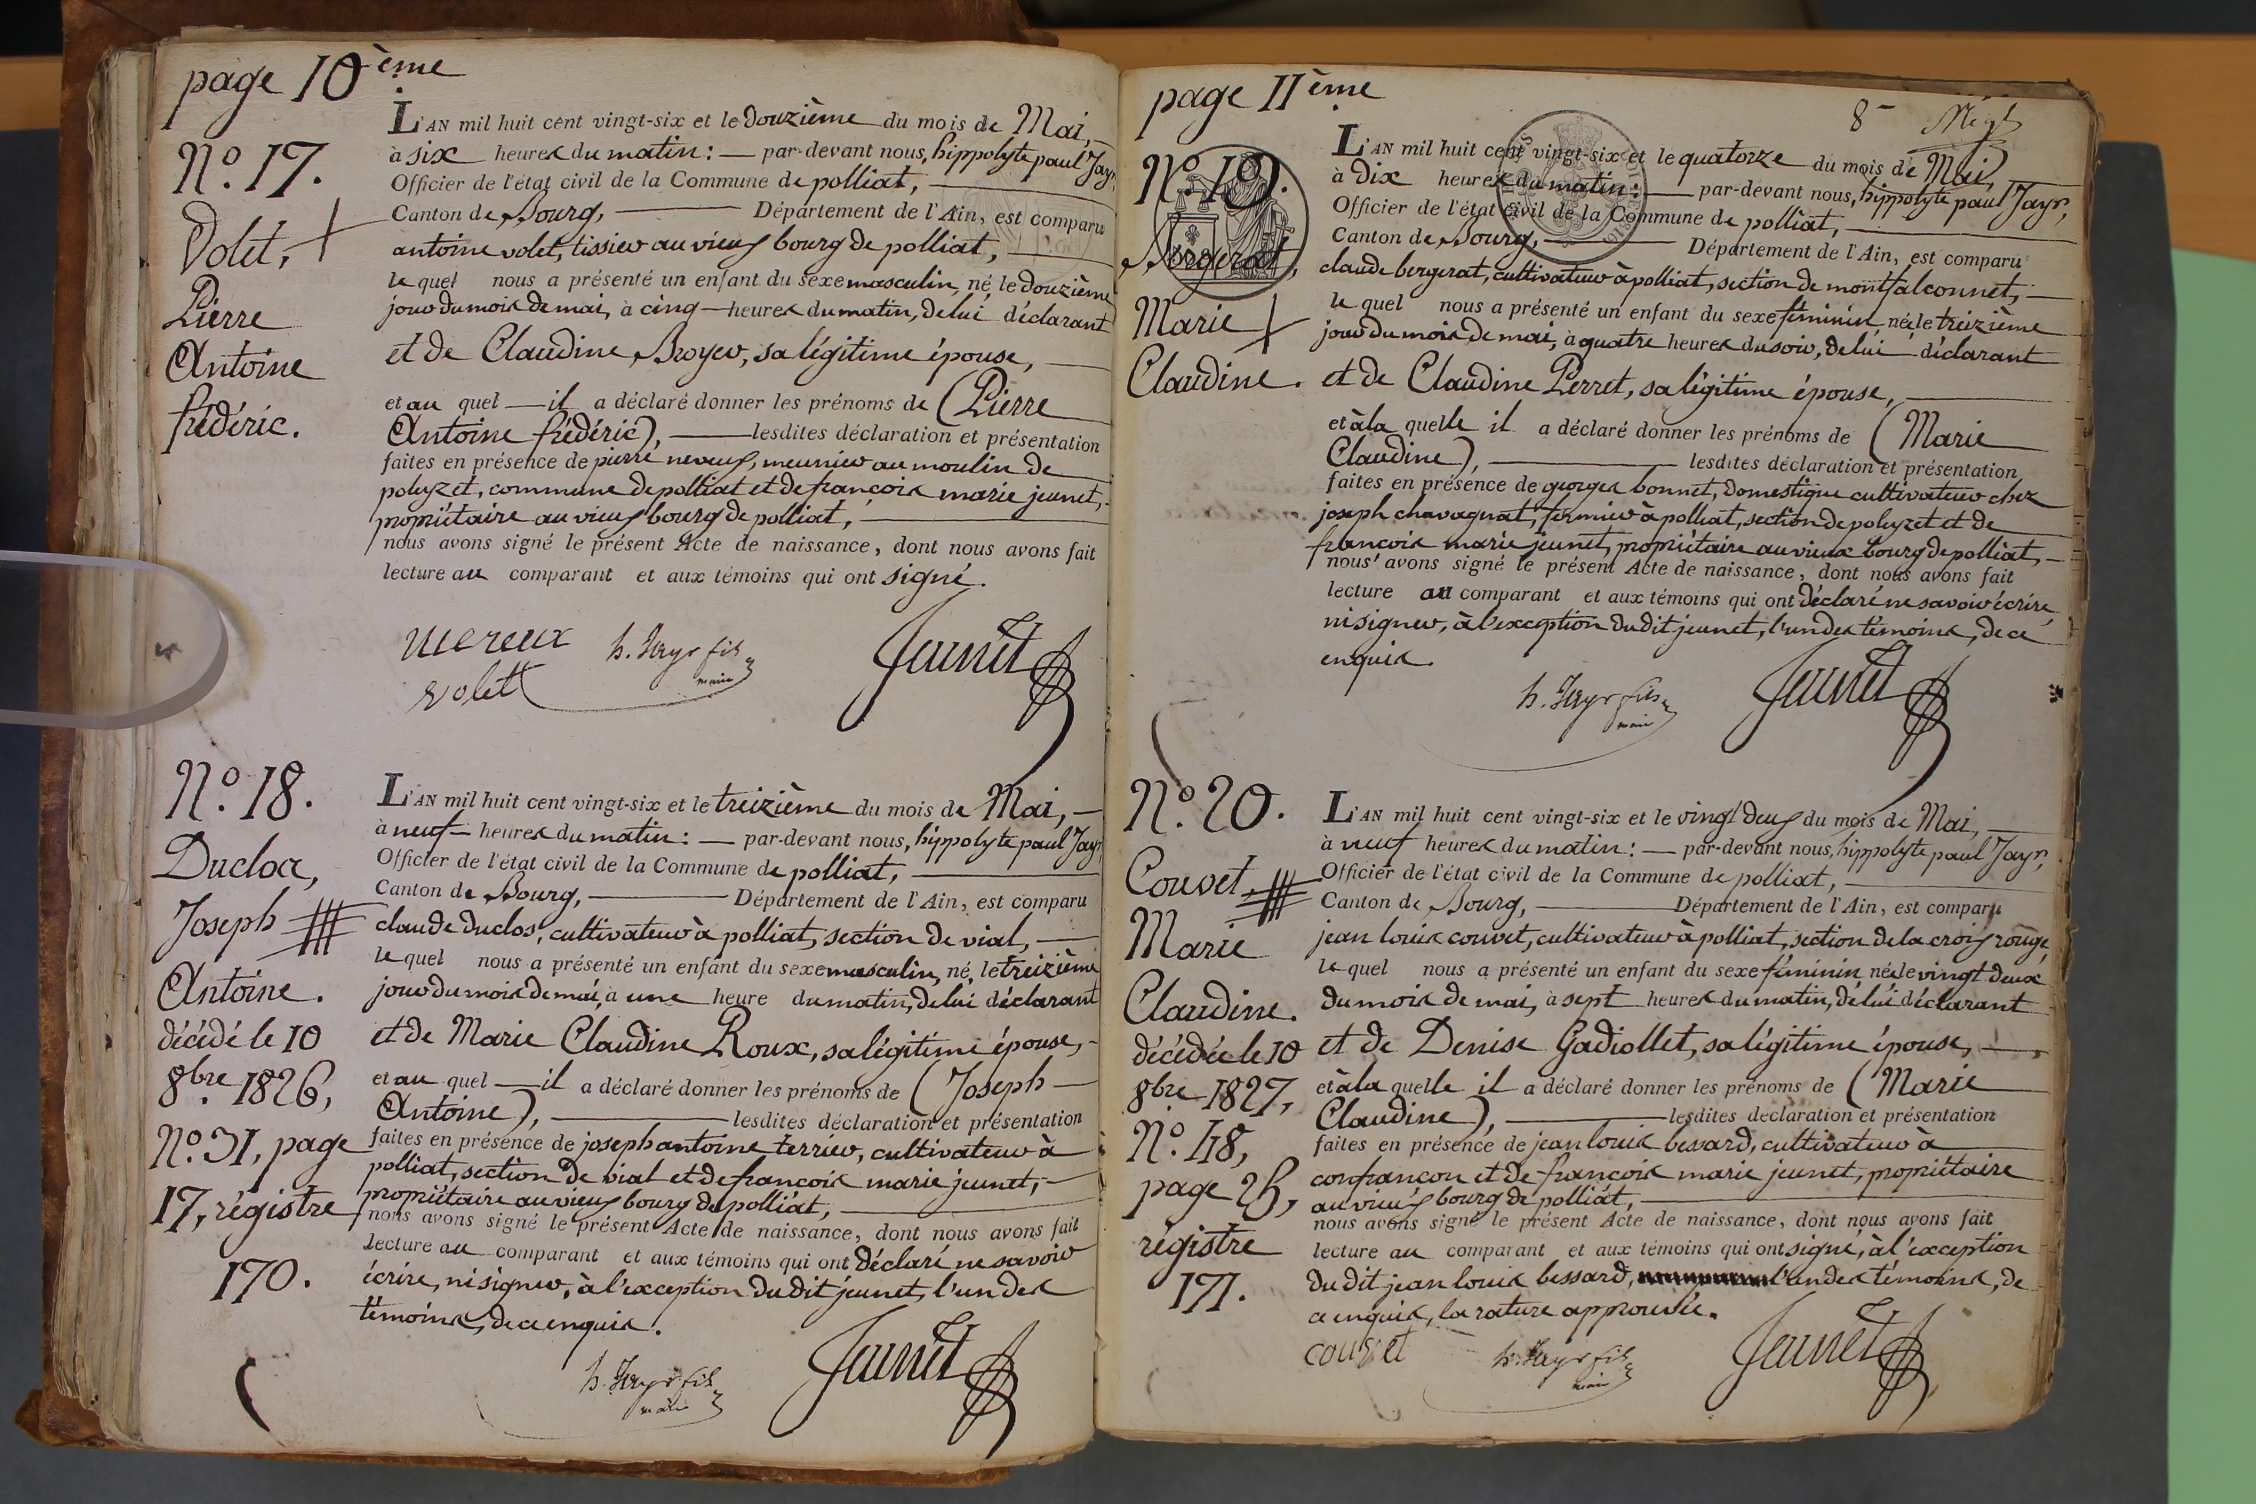 page 10ème
N.º 17.
Volet,
Pierre
Antoine
frédéric.
L'AN mil huit cent vingt-six et le douzième du mois de Mai,
à six heures du matin : par-devant nous, hippolyte paul Jayr,
Officier de l'état civil de la Commune de polliat,
Canton de Bourg, Département de l'Ain, est comparu
antoine volet, tissier au vieux bourg de polliat,
le quel nous a présenté un enfant du sexe masculin, né le douzième
jour du mois de mai, à cinq heures du matin, de lui déclarant
et de Claudine Broyer, sa légitime épouse,
et au quel il a déclaré donner les prénoms de (Pierre
Antoine frédéric), lesdites déclaration et présentation
faites en présence de pierre neveux, meunier au moulin de
poluyzet, commune de polliat et de françois marie jeunet,
propriétaire au vieux bourg de polliat,
nous avons signé le présent Acte de naissance, dont nous avons fait
lecture au comparant et aux témoins qui ont signé.
h. Jayr fils Jeunet
maire
volet
N.º 18.
Duclos,
Joseph
Antoine.
décédé le 10
8bre 1826,
Nº. 31, page
17, régistre
170.
L'AN mil huit cent vingt-six et le treizième du mois de Mai,
à neuf heures du matin : par-devant nous, hippolyte paul Jayr,
Officier de l'état civil de la Commune de polliat,
Canton de Bourg, Département de l'Ain, est comparu
claude duclos, cultivateur à polliat, section de vial,
le quel nous a présenté un enfant du sexe masculin, né le treizième
jour du mois de mai, à une heure du matin, de lui déclarant
et de Marie Claudine Roux, sa légitime épouse,
et au quel il a déclaré donner les prénoms de (Joseph
Antoine), lesdites déclaration et présentation
faites en présence de joseph antoine terrier, cultivateur à
polliat, section de vial et de françois marie jeunet,
propriétaire au vieux bourg de polliat,
nous avons signé le présent Acte de naissance, dont nous avons fait
lecture au comparant et aux témoins qui ont déclaré ne savoir
écrire, ni signer, à l'exception du dit jeunet, l'un des
témoins, de ce enquis.
h. Jayr fils Jeunet
maire
page 11ème
8
N.º 19.
Bergerat,
Marie
Claudine.
L'AN mil huit cent vingt-six et le quatorze du mois de Mai,
à dix heures du matin : par-devant nous, hippolyte paul Jayr,
Officier de l'état civil de la Commune de polliat,
Canton de Bourg, Département de l'Ain, est comparu
claude bergerat, cultivateur à polliat, section de montfalconnet,
le quel nous a présenté un enfant du sexe féminin, née le treizième
jour du mois de mai, à quatre heures du soir, de lui déclarant
et de Claudine Perret, sa légitime épouse,
et à la quelle il a déclaré donner les prénoms de (Marie
Claudine), lesdites déclaration et présentation
faites en présence de georges bonnet, domestique cultivateur chez
joseph chavagnat, fermier à polliat, section de poluyzet et de
françois marie jeunet, propriétaire au vieux bourg de polliat,
nous avons signé le présent Acte de naissance, dont nous avons fait
lecture au comparant et aux témoins qui ont déclaré ne savoir écrire,
ni signer, à l'exception du dit jeunet, l'un des témoins, de ce
enquis.
h. Jayr fils Jeunet
maire
N.º 20.
Couvet,
Marie
Claudine.
décédée le 10
8bre 1827,
Nº. 48,
page 25,
régistre
171.
L'AN mil huit cent vingt-six et le vingt deux du mois de Mai,
à neuf heures du matin : par-devant nous, hippolyte paul Jayr,
Officier de l'état civil de la Commune de polliat,
Canton de Bourg, Département de l'Ain, est comparu
jean louis couvet, cultivateur à polliat, section de la croix rouge,
le quel nous a présenté un enfant du sexe féminin, née le vingt deux
du mois de mai, à sept heures du matin, de lui déclarant
et de Denise Gadiollet, sa légitime épouse,
et à la quelle il a déclaré donner les prénoms de (Marie
Claudine), lesdites déclaration et présentation
faites en présence de jean louis bessard, cultivateur à
confrançon et de françois marie jeunet, propriétaire
au vieux bourg de polliat,
nous avons signé le présent Acte de naissance, dont nous avons fait
lecture au comparant et aux témoins qui ont signé, à l'exception
du dit jean louis bessard, l'un des témoins, de
ce enquis, la rature approuvée.
couvet h. Jayr fils Jeunet
maire